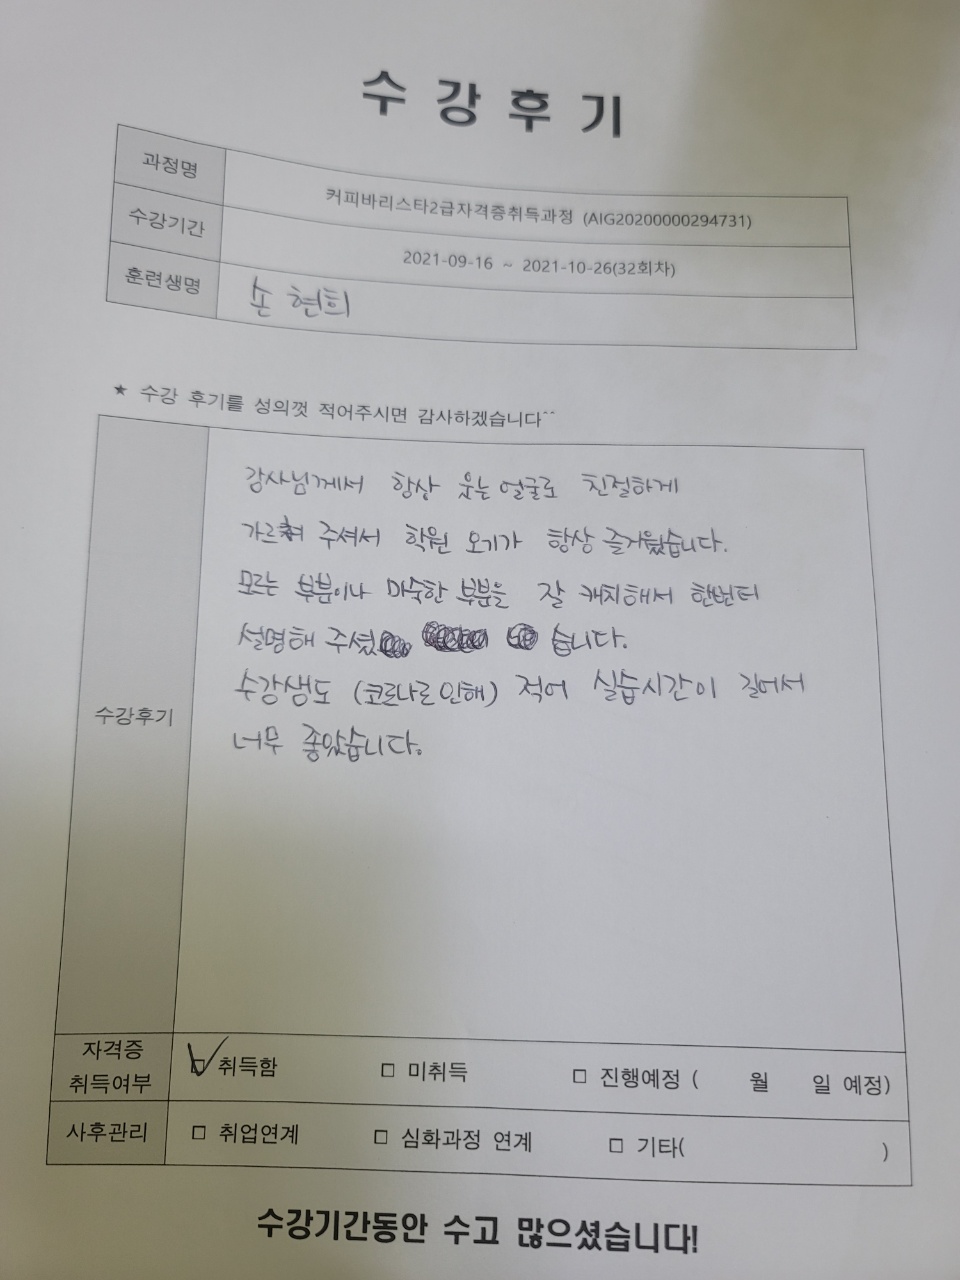 수강후기
과정명 커피바리스타2급자격증취득과정 (AIG20200000294731)
수강기간 2021-09-16 ~ 2021-10-26(32회차)
훈련생명 손 현희
★ 수강 후기를 성의껏 적어주시면 감사하겠습니다^^
수강후기
강사님께서 항상 웃는 얼굴로 친절하게
가르쳐 주셔서 학원 오기가 항상 즐거웠습니다.
모르는 부분이나 미숙한 부분을 잘 캐치해서 한번더
설명해 주셨습니다.
수강생도 (코로나로 인해) 적어 실습시간이 길어서
너무 좋았습니다.
자격증 취득여부 □ 취득함 □ 미취득 □ 진행예정 ( 월 일 예정)
사후관리 □ 취업연계 □ 심화과정 연계 □ 기타( )
수강기간동안 수고 많으셨습니다!